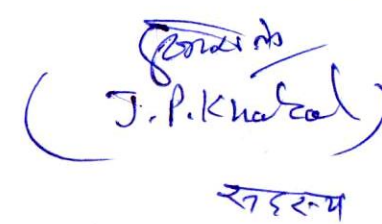 (J.P.Khakal)
सदस्य